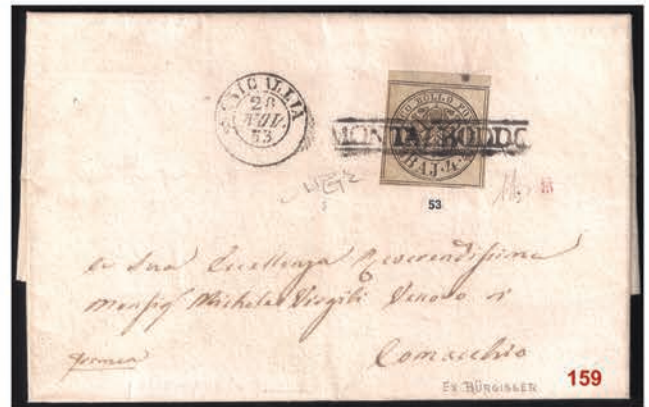 SENIGALLIA
28
NOV.
53
FRANCO BOLLO POSTALE
MONTALBODDO
BAJ. 4
53
A Sua Eccellenza Reverendissima
Monsig Michele Virgili Vescovo di
Comacchio
EX BÜRGISSER
159